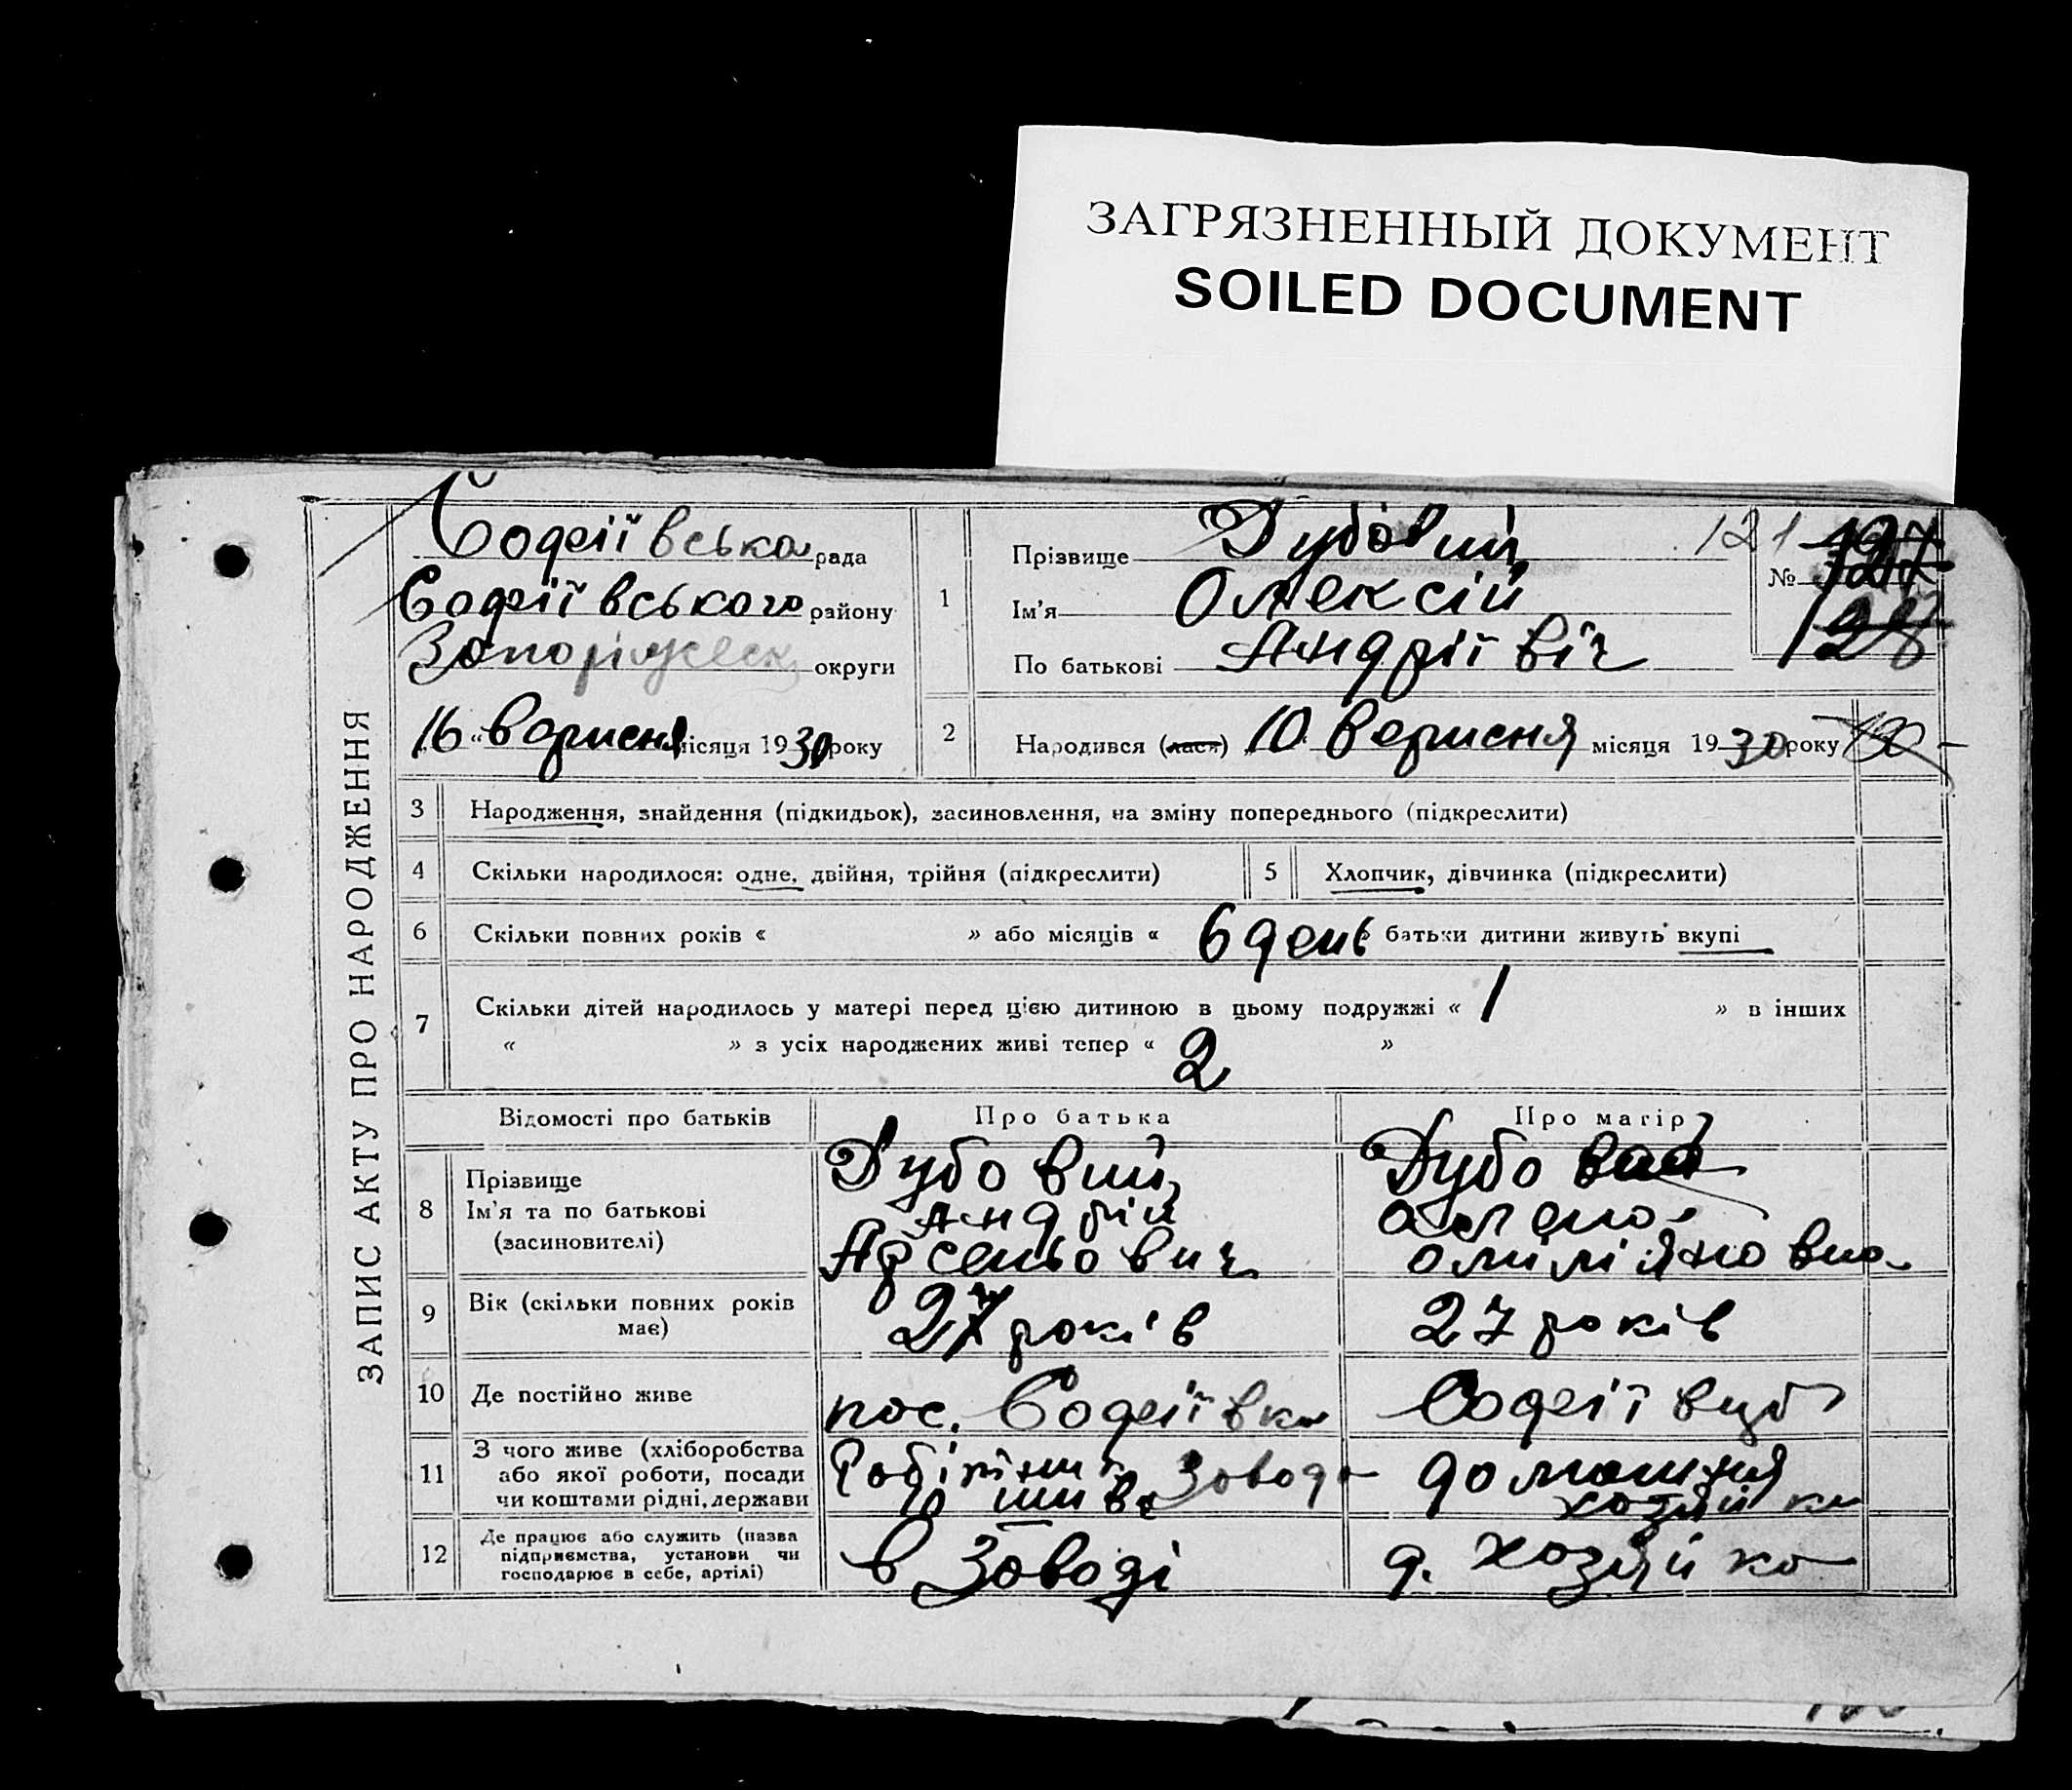 ЗАГРЯЗНЕННЫЙ ДОКУМЕНТ
SOILED DOCUMENT
ЗАПИС АКТУ ПРО НАРОДЖЕННЯ
Софіївська рада
Софіївського району
округи
16 « вересня місяця 1930 року
1
Прізвище Дубовий
Ім'я Олексій
По батькові Андріївіч
121 127
№
128
2 Народився (лася) 10 вересня місяця 1930 року
3 Народження, знайдення (підкидьок), засиновлення, на зміну попереднього (підкреслити)
4 Скільки народилося: одне, двійня, трійня (підкреслити) 5 Хлопчик, дівчинка (підкреслити)
6 Скільки повних років « » або місяців « 6 день » батьки дитини живуть вкупі
7 Скільки дітей народилось у матері перед цією дитиною в цьому подружжі « 1 » в інших
« » з усіх народжених живі тепер « 2 »
Відомості про батьків Про батька Про матір
8 Прізвище Дубовий Дубовая
Ім'я та по батькові Андрій
(засиновителі) Арсеньович
9 Вік (скільки повних років має) 27 років 27 років
10 Де постійно живе пос. Софіївка
11 З чого живе (хліборобства
або якої роботи, посади
чи коштами рідні, держави
Робітник домашня
хозяйка
12 Де працює або служить (назва
підприємства, установи чи
господарює в себе, артілі)
в Заводі д. хозяйка